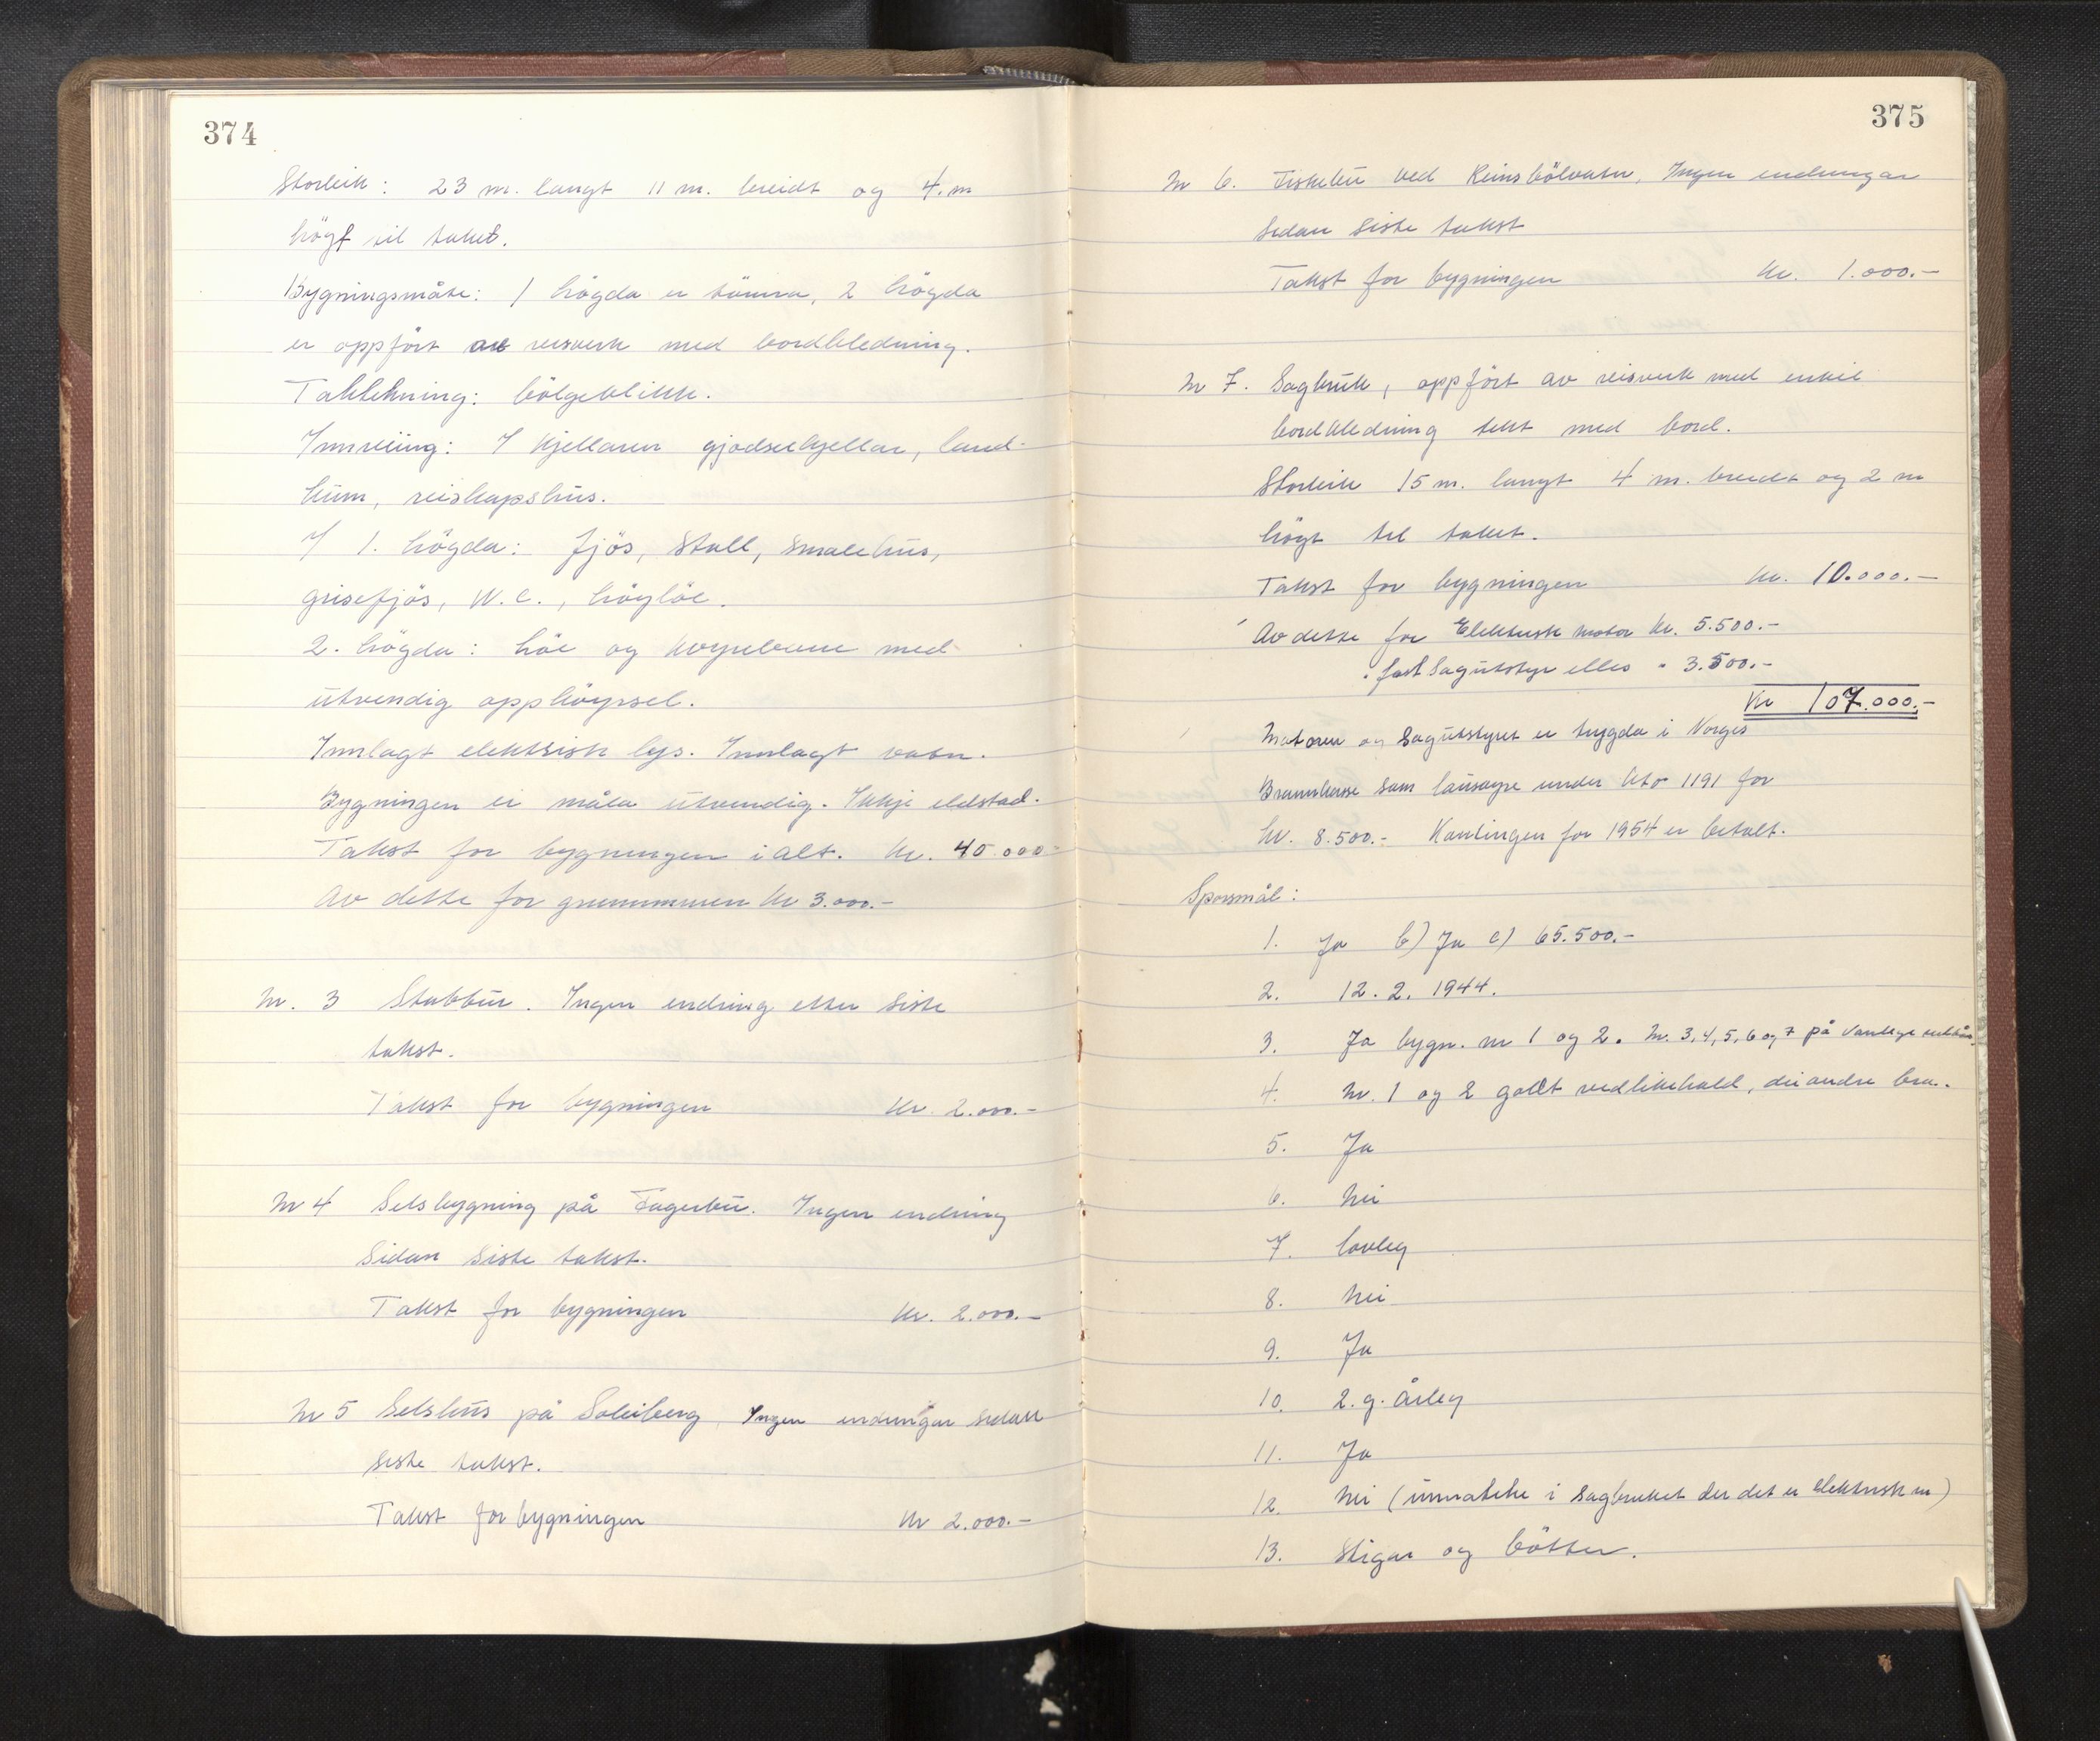 374
Storleik: 23 m. langt 11 m. breidt og 4. m
högt til taket.
Bygningsmåte: 1 högda er tömra, 2 högda
er oppfört av reisverk med bordkledning.
Taktekning: bölgeblikk.
Innreiing: I kjellaren gjödselkjellar, land-
kum, reiskapshus.
I 1. högda: fjös, stall, smalehus,
grisefjös, W.C., höylöe.
2. högda: löe og köyrebru med
utvendig oppköyrsel.
Innlagt elektrisk lys. Innlagt vatn.
Bygningen er måla utvendig. Ikkje eldstad.
Takst for bygningen ialt. Kr. 40.000-
Av dette for grunnmuren Kr 3.000.-
Nr. 3 Stabbur. Ingen endring etter siste
takst.
Takst for bygningen Kr. 2.000.-
Nr 4 Selsbygning på Fagerbu. Ingen endring
sidan siste takst.
Takst for bygningen Kr. 2.000.-
Nr 5 Selshus på Soleiberg, Ingen endringar sidan
siste takst.
Takst for bygningen Kr 2.000.-
375
Nr 6. Fiskebu ved Reinsbölvatn, Ingen endringar
sidan siste takst
Takst for bygningen Kr. 1.000.-
Nr 7. Sagbruk, oppfört av reisverk med enkel
bordkledning tekt med bord.
Storleik 15 m. langt 4 m. breidt og 2 m
högt til taket.
Takst for bygningen Kr. 10.000.-
Av dette for Elektrisk motor Kr. 5.500.-
" fast Sagutstyr elles " 3.500.-
Kr 107.000.-
Motoren og Sagutstyret er trygda i Norges
Brannkasse som lausöyre under kto 1191 for
kr. 8.500.- Kontingen for 1954 er betalt.
Sporsmål:
1. Ja b) Ja c) 65.500.-
2. 12.2. 1944.
3. Ja bygn. nr 1 og 2. Nr. 3,4,5,6 og 7 på vanlege
4. Nr. 1 og 2 godt vedlikehald, dei andre bra.
5. Ja
6. Nei
7. lovleg
8. Nei
9. Ja
10. 2. g. årleg
11. Ja
12. Nei (unnateke i Sagbruket der det er elektrisk m)
13. Stigar og bötter.